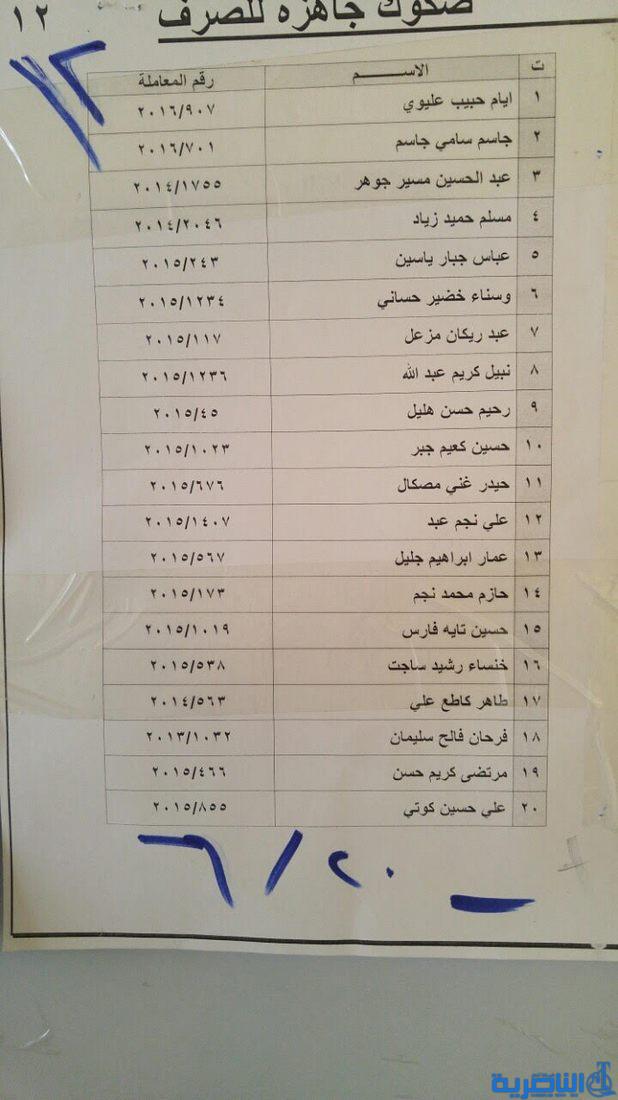 صكوك جاهزه للصرف
١٢
١٢
ت الاســـــم رقم المعاملة
١ ايام حبيب عليوي ٢٠١٦/٩٠٧
٢ جاسم سامي جاسم ٢٠١٦/٧٠١
٣ عبد الحسين مسير جوهر ٢٠١٤/١٧٥٥
٤ مسلم حميد زياد ٢٠١٤/٢٠٤٦
٥ عباس جبار ياسين ٢٠١٥/٢٤٣
٦ وسناء خضير حساني ٢٠١٥/١٢٣٤
٧ عبد ريكان مزعل ٢٠١٥/١١٧
٨ نبيل كريم عبد الله ٢٠١٥/١٢٣٦
٩ رحيم حسن هليل ٢٠١٥/٤٥
١٠ حسين كعيم جبر ٢٠١٥/١٠٢٣
١١ حيدر غني مصكال ٢٠١٥/٦٧٦
١٢ علي نجم عبد ٢٠١٥/١٤٠٧
١٣ عمار ابراهيم جليل ٢٠١٥/٥٦٧
١٤ حازم محمد نجم ٢٠١٥/١٧٣
١٥ حسين تايه فارس ٢٠١٥/١٠١٩
١٦ خنساء رشيد ساجت ٢٠١٥/٥٣٨
١٧ طاهر كاطع علي ٢٠١٤/٥٦٣
١٨ فرحان فالح سليمان ٢٠١٣/١٠٣٢
١٩ مرتضى كريم حسن ٢٠١٥/٤٦٦
٢٠ علي حسين كوتي ٢٠١٥/٨٥٥
٦/٢٠
الناصرية